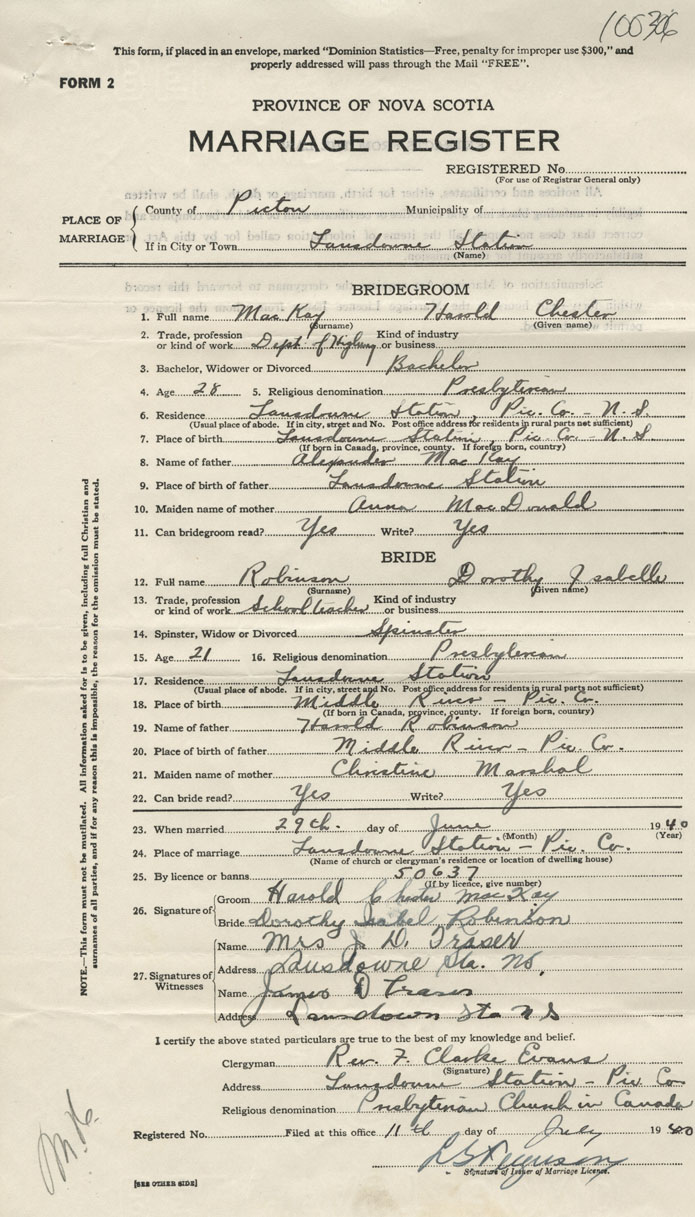 100306
This form, if placed in an envelope, marked "Dominion Statistics—Free, penalty for improper use $300," and
properly addressed will pass through the Mail "FREE".
FORM 2
PROVINCE OF NOVA SCOTIA
MARRIAGE REGISTER
REGISTERED No.
(For use of Registrar General only)
PLACE OF MARRIAGE
County of Pictou Municipality of
If in City or Town Lansdowne Station
(Name)
BRIDEGROOM
1. Full name MacKay Harold Chester
(Surname) (Given name)
2. Trade, profession or kind of work Dept. of Highway Kind of industry or business
3. Bachelor, Widower or Divorced Bachelor
4. Age 28 5. Religious denomination Presbyterian
6. Residence Lansdowne Station, Pic. Co. - N.S.
(Usual place of abode. If in city, street and No. Post office address for residents in rural parts not sufficient)
7. Place of birth Lansdowne Station, Pic. Co. - N.S.
(If born in Canada, province, county. If foreign born, country)
8. Name of father Alexander MacKay
9. Place of birth of father Lansdowne Station
10. Maiden name of mother Anna MacDonald
11. Can bridegroom read? Yes Write? Yes
BRIDE
12. Full name Robinson Dorothy Isabelle
(Surname) (Given name)
13. Trade, profession or kind of work School teacher Kind of industry or business
14. Spinster, Widow or Divorced Spinster
15. Age 21 16. Religious denomination Presbyterian
17. Residence Lansdowne Station
(Usual place of abode. If in city, street and No. Post office address for residents in rural parts not sufficient)
18. Place of birth Middle River - Pic. Co.
(If born in Canada, province, county. If foreign born, country)
19. Name of father Harold Robinson
20. Place of birth of father Middle River - Pic Co.
21. Maiden name of mother Christine Marshal
22. Can bride read? Yes Write? Yes
23. When married 29th. day of June 1940
(Month) (Year)
24. Place of marriage Lansdowne Station - Pic. Co.
(Name of church or clergyman's residence or location of dwelling house)
25. By licence or banns 50637
(If by licence, give number)
26. Signature of
Groom Harold Chester MacKay
Bride Dorothy Isabel Robinson
27. Signatures of Witnesses
Name Mrs J. D. Fraser
Address Lansdowne Sta. NS.
Name James D Fraser
Address Lansdown Sta N S
I certify the above stated particulars are true to the best of my knowledge and belief.
Clergyman Rev. F. Clarke Evans
(Signature)
Address Lansdowne Station - Pic Co
Religious denomination Presbyterian Church in Canada
Registered No. Filed at this office 11th day of July 1940
Ferguson
Signature of Issuer of Marriage Licence.
[SEE OTHER SIDE]
NOTE.—This form must not be mutilated. All information asked for is to be given, including full Christian and
surnames of all parties, and if for any reason this is impossible, the reason for the omission must be stated.